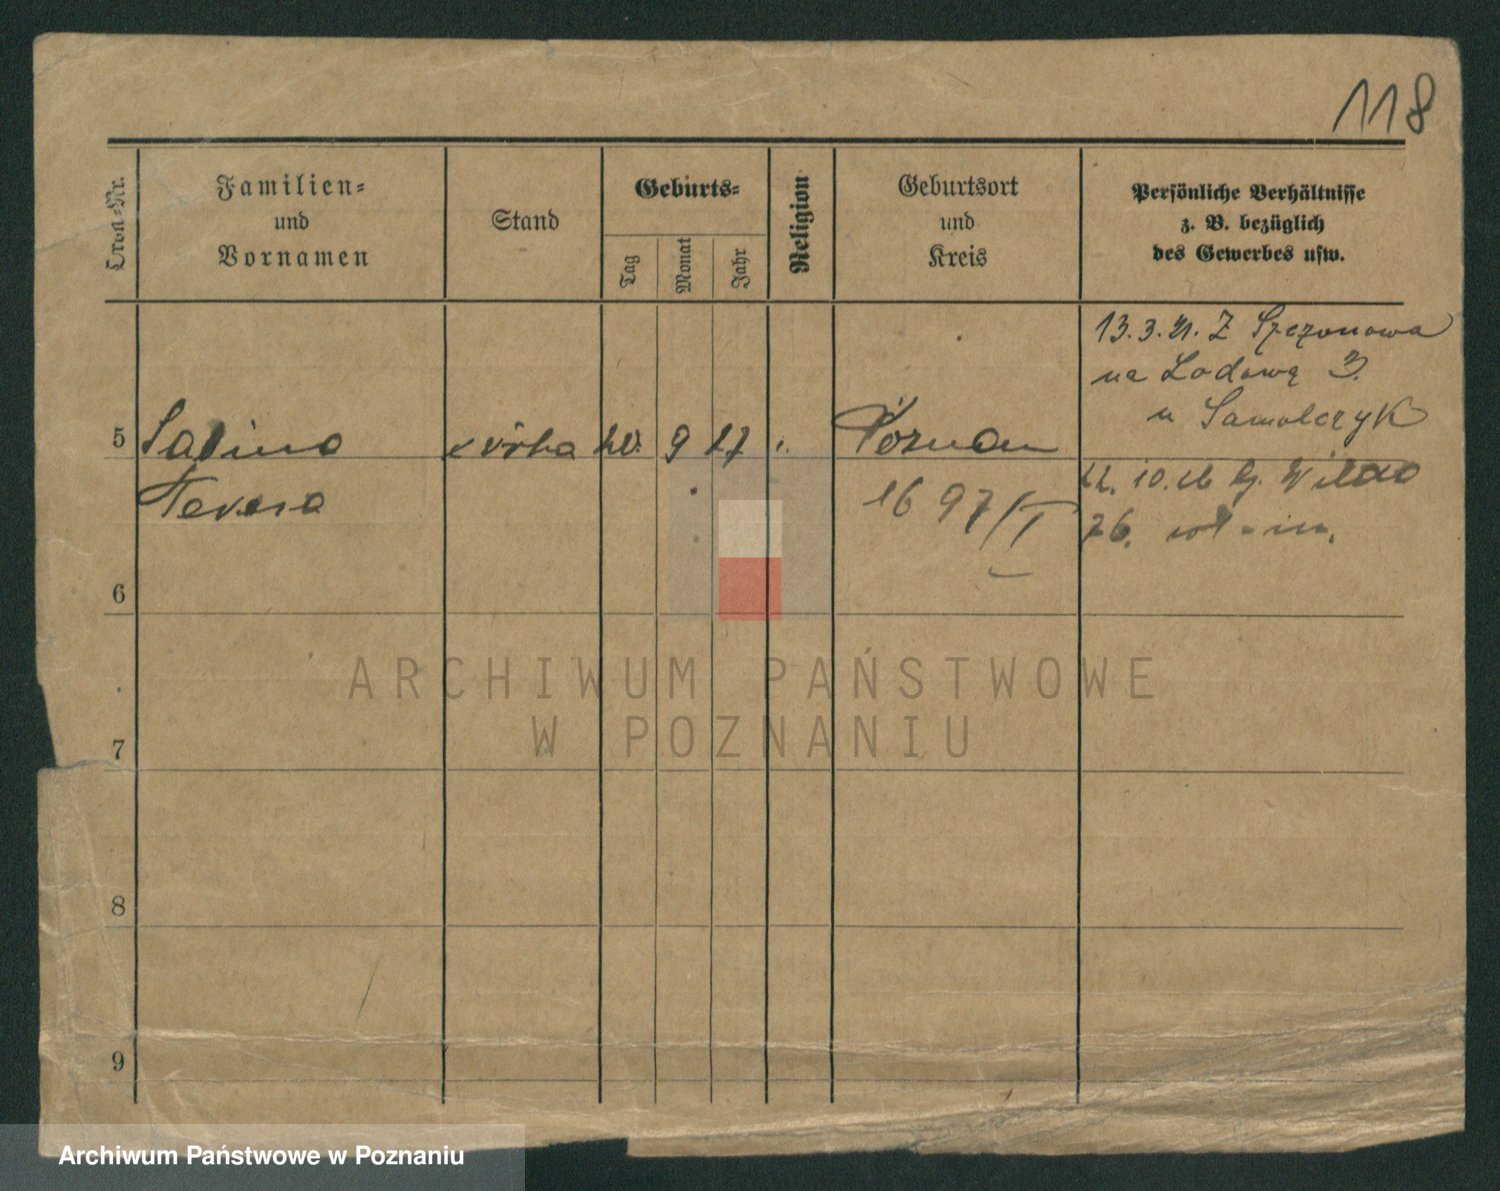 118
Ordn.=Nr.
Familien=
und
Vornamen
Stand
Geburts=
Tag
Monat
Jahr
Religion
Geburtsort
und
Kreis
Persönliche Verhältnisse
z. B. bezüglich
des Gewerbes usw.
13.3.21. Z
na Lodową 3.
u Samolczyk
5
Sabina
córka
9
27
Poznań
Teresa
1697/I
22. 10. 26 G. Wilda
76.
6
7
8
9
ARCHIWUM PAŃSTWOWE
W POZNANIU
Archiwum Państwowe w Poznaniu